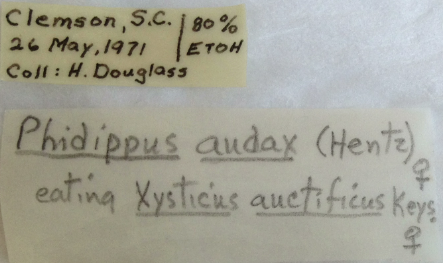 Clemson, S.C. | 80%
26 May, 1971 | ETOH
Coll: H. Douglass
Phidippus audax (Hentz) ♀
eating Xysticus auctificus Keys. ♀